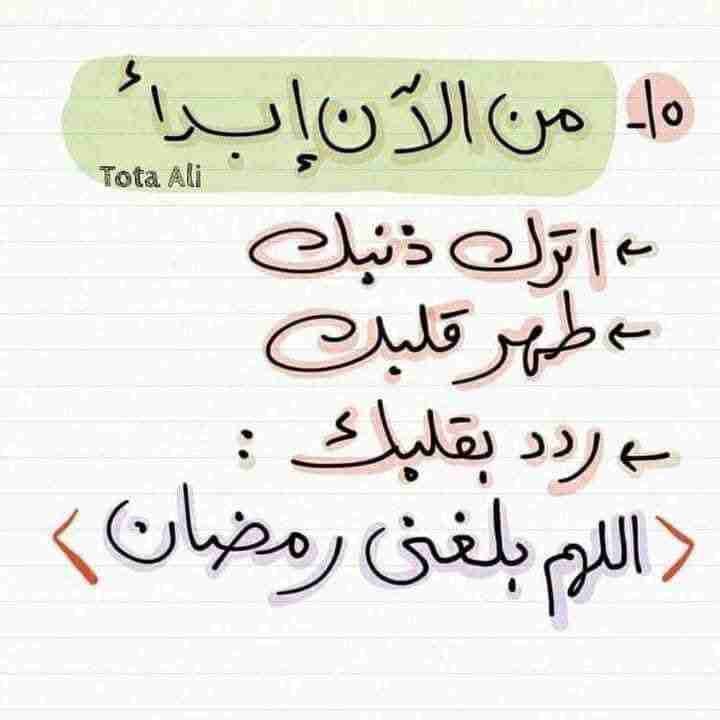 ١٥- من الآن إبدأ
Tota Ali
← اترك ذنبك
← طهر قلبك
← ردد بقلبك :
< اللهم بلغنى رمضان >